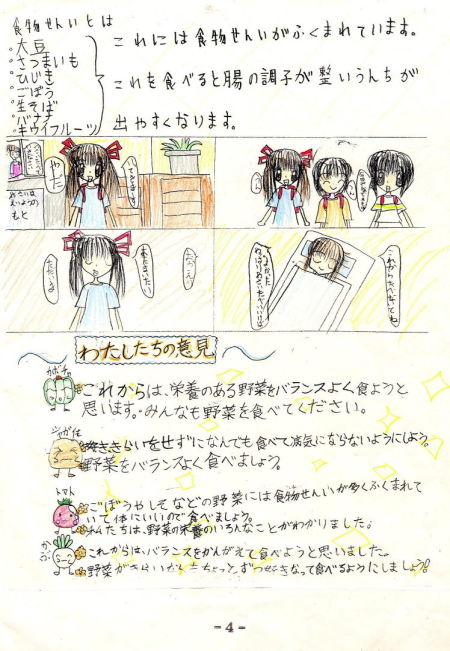 食物せんいとは
・大豆
・さつまいも
・ひじき
・ごぼう
・生そば
・バナナ
・キウイフルーツ
これには食物せんいがふくまれています。
これを食べると腸の調子が整いうんちが
出やすくなります。
やさいは
えいようの
もと
やった
うん
おかえり
これからたべないでね
わたしたちの意見
カボチャ
これからは、栄養のある野菜をバランスよく食ようと
思います。みんなも野菜を食べてください。
ジャガイモ
好ききらいをせずになんでも食べて病気にならないようにしよう。
野菜をバランスよく食べましょう。
トマト
ごぼうやしそなどの野菜には食物せんいが多くふくまれて
いて体にいいので食べましょう。
私たちは、野菜の栄養のいろんなことがわかりました。
かぶ
これからは、バランスをかんがえて食べようと思いました。
野菜がきらいな人もちょっとずつ好きなって食べるようにしましょう!
-4-